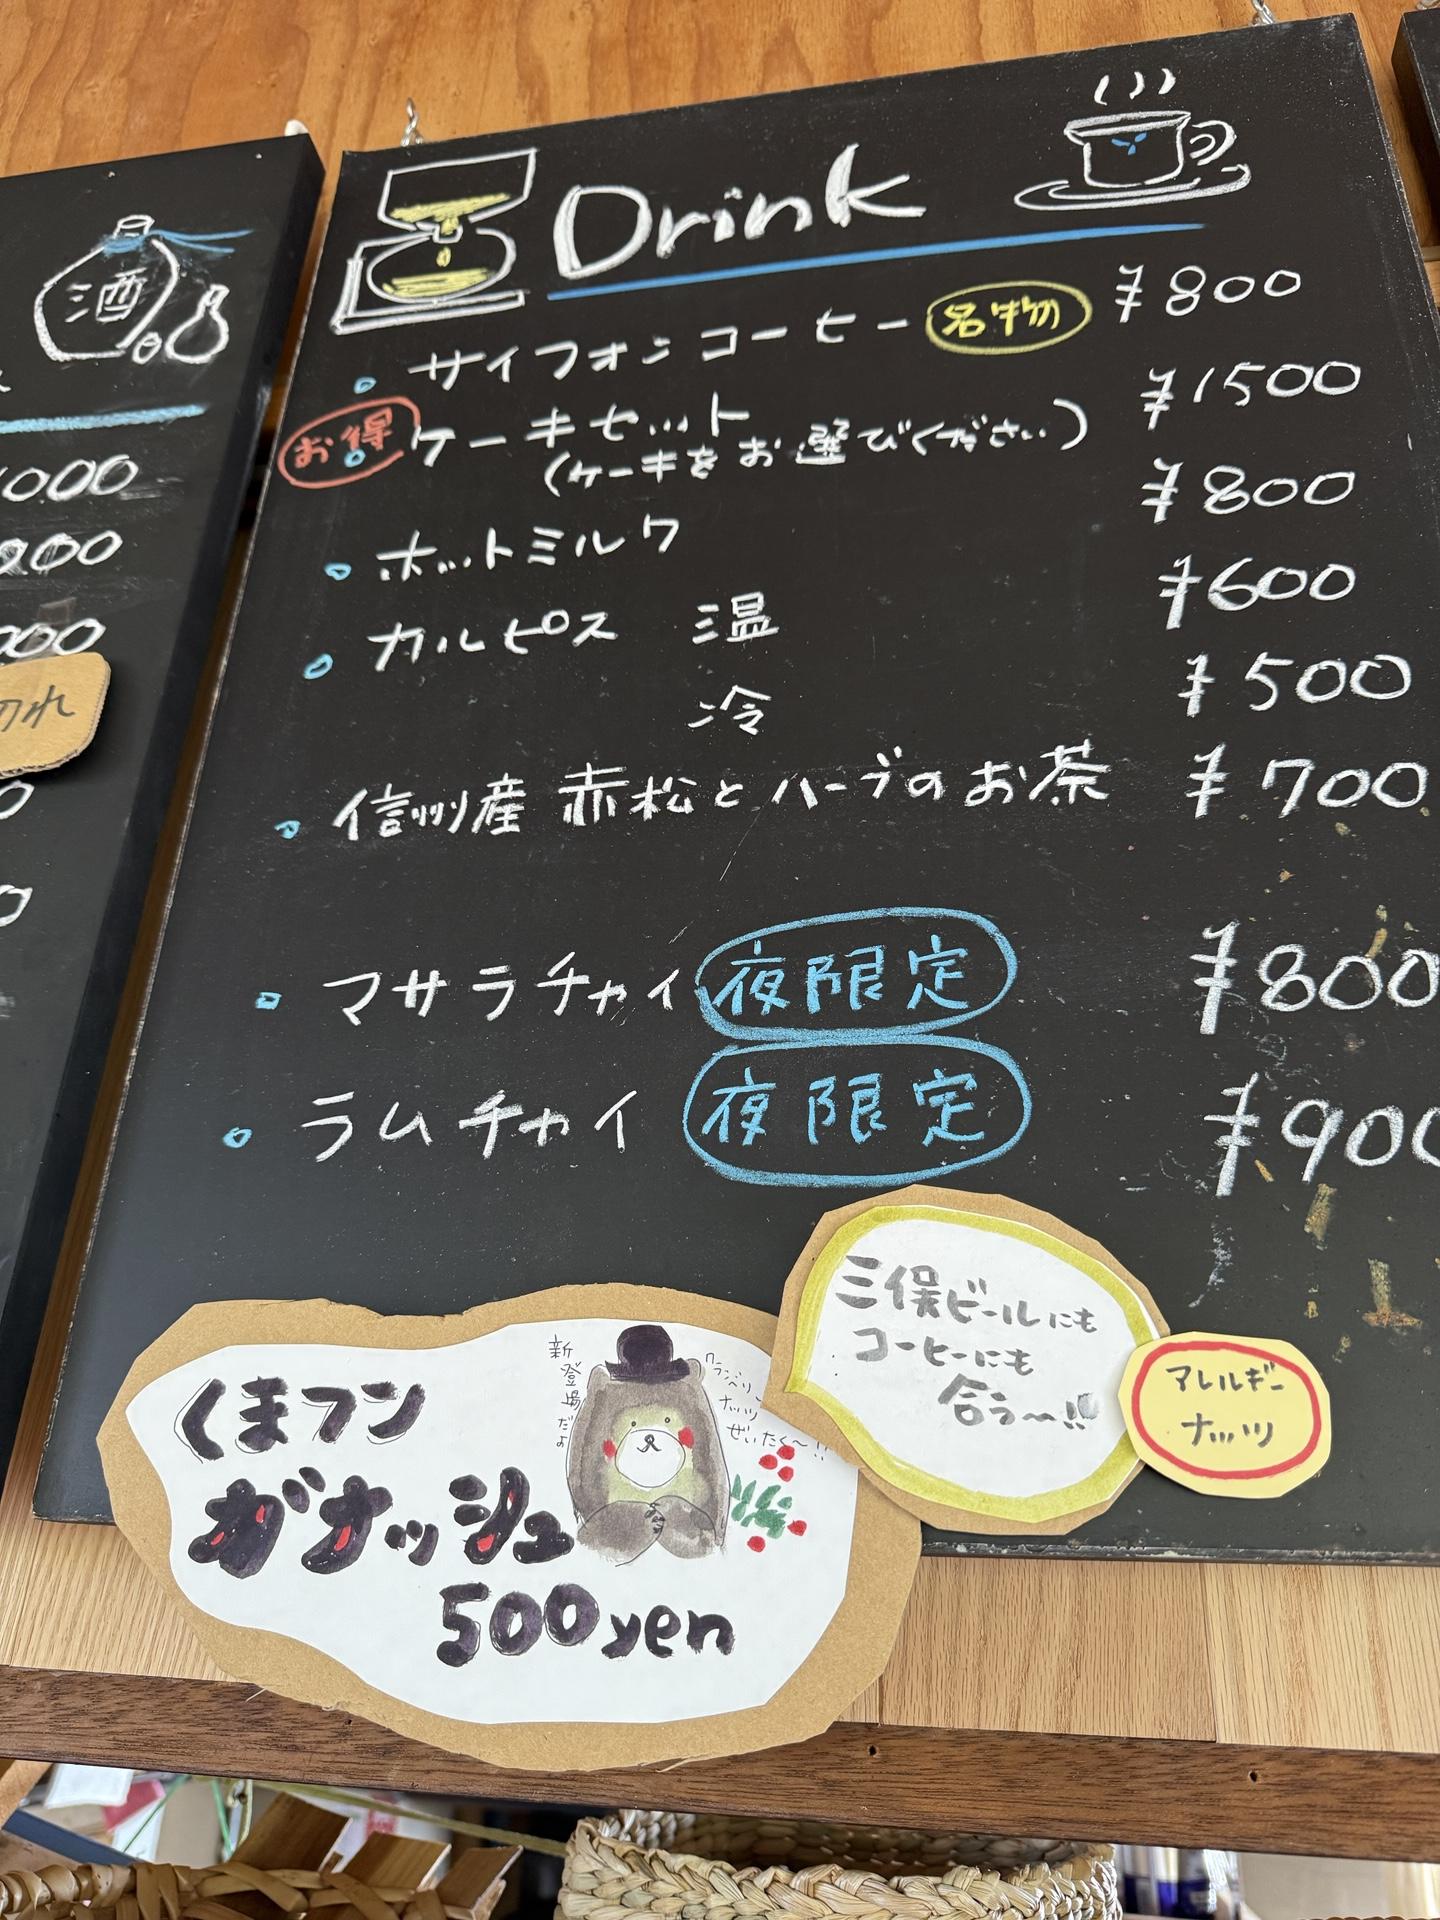 酒
000
200
000
切れ
Drink
サイフォンコーヒー 名物 ¥800
お得 ケーキセット ¥1500
(ケーキをお選びください)
ホットミルク ¥800
カルピス 温 ¥600
冷 ¥500
信州産 赤松とハーブのお茶 ¥700
マサラチャイ 夜限定 ¥800
ラムチャイ 夜限定 ¥900
くまフン
ガナッシュ
500yen
新登場だよ
クランベリー
ナッツ
ぜいたく〜!!
三俣ビールにも
コーヒーにも
合う〜!!
アレルギー
ナッツ